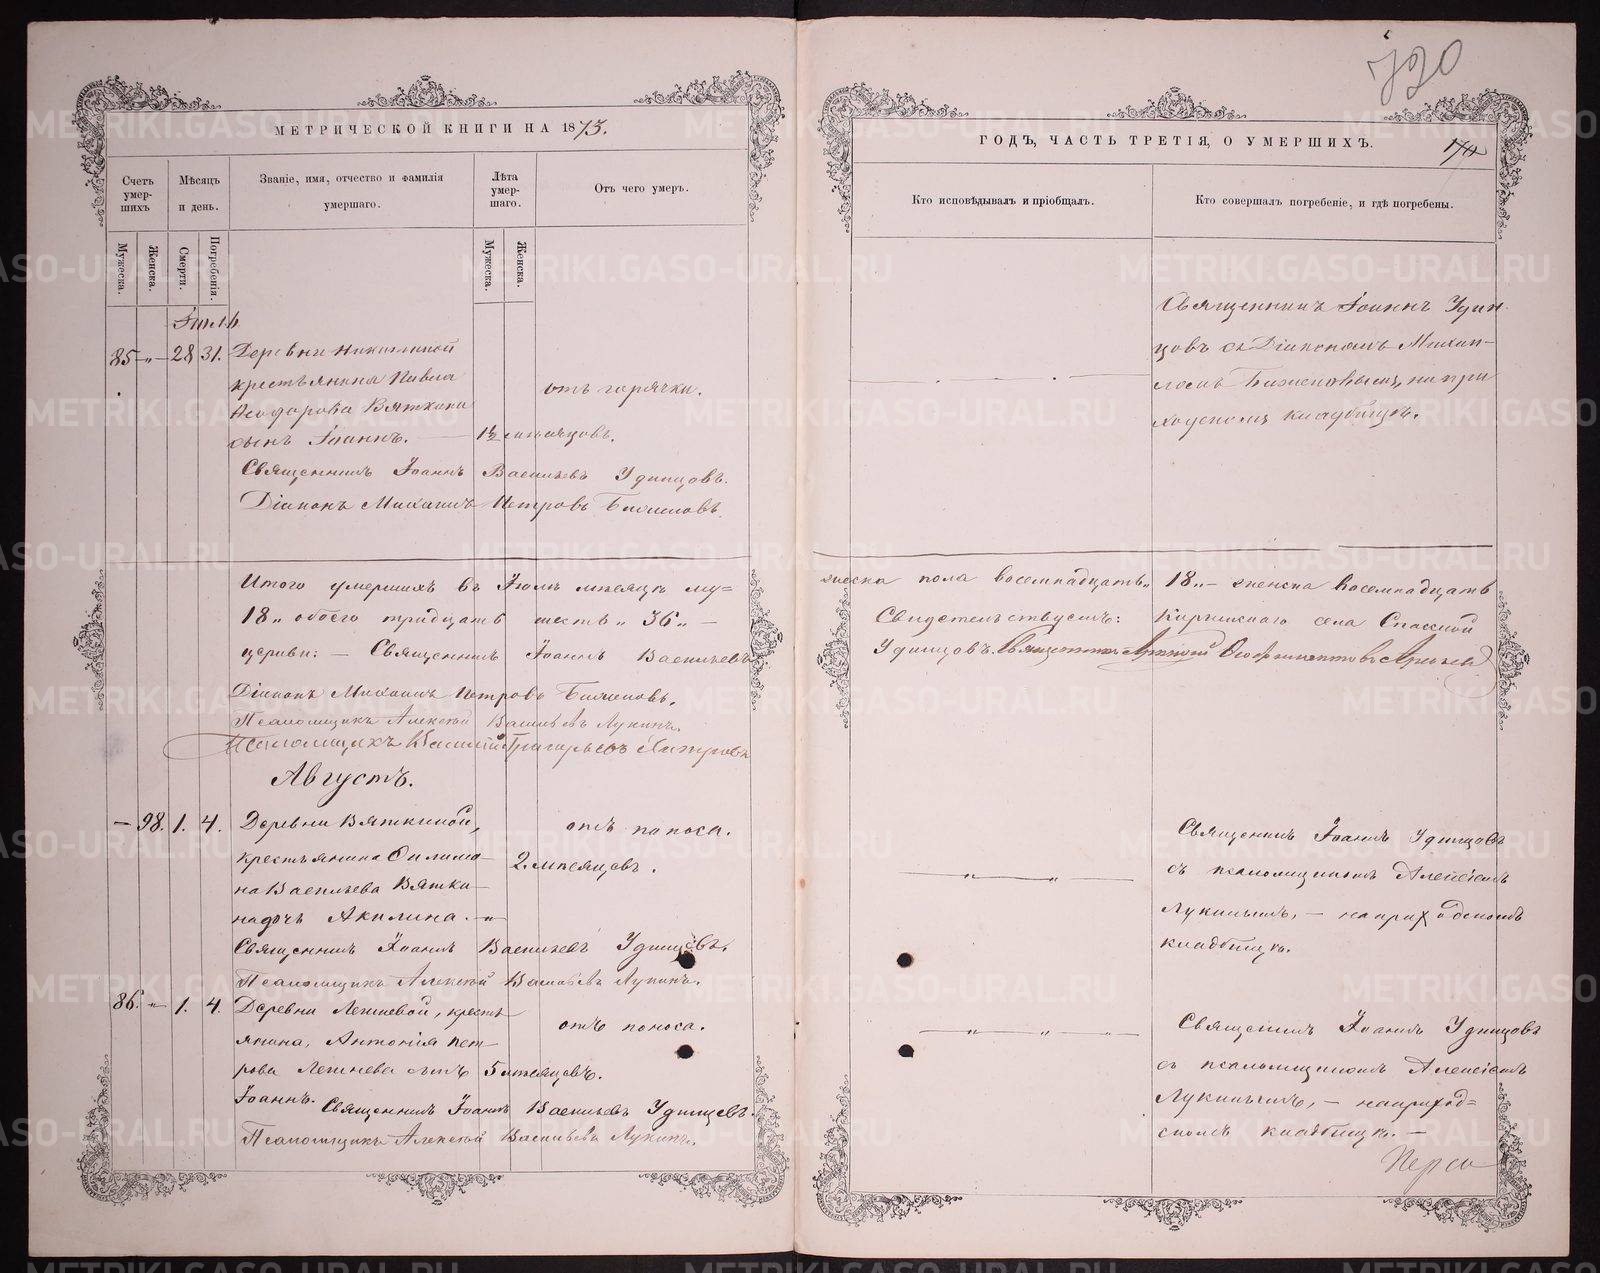 МЕТРИЧЕСКОЙ КНИГИ НА 1873.
Счетъ умер- шихъ
Мѣсяцъ и день.
Званіе, имя, отчество и фамилія умершаго.
Лѣта умер- шаго.
Отъ чего умеръ.
Мужеска.
Женска.
Смерти.
Погребенія.
Мужеска.
Женска.
Іюль
85 - „ - 28 31. Деревни
крестьянина Павла
Ѳеодорова Вяткина отъ горячки.
сынъ Іоаннъ. 1½ мѣсяцовъ.
Священникъ Іоаннъ Васильевъ Удинцовъ.
Діаконъ Михаилъ Петровъ
Итого умершихъ въ Іюлѣ мѣсяцѣ му=
18 „ обоего тридцать шесть „ 36 „ —
церкви: — Священникъ Іоаннъ Васильевъ
Діаконъ Михаилъ Петровъ
Псаломщикъ Алексѣй Васильевъ Лукинъ.
Псаломщикъ Василій Григорьевъ
Августъ.
— 98. 1. 4. Деревни Вяткиной, отъ поноса.
крестьянина Филимо-
на Васильева Вятки- 2. мѣсяцовъ.
на дочь Акилина. „
Священникъ Іоаннъ Васильевъ Удинцовъ.
Псаломщикъ Алексѣй Васильевъ Лукинъ.
86. „ 1. 4. Деревни Лепневой, кресть-
янина, Антонія Пет- отъ поноса.
рова Лепнева сынъ 5 мѣсяцовъ.
Іоаннъ. Священникъ Іоаннъ Васильевъ Удинцовъ.
Псаломщикъ Алексѣй Васильевъ Лукинъ.
720
ГОДЪ, ЧАСТЬ ТРЕТІЯ, О УМЕРШИХЪ.
Кто исповѣдывалъ и пріобщалъ.
Кто совершалъ погребеніе, и гдѣ погребены.
Священникъ Іоаннъ Удин-
цовъ съ Діакономъ Михаи-
ломъ на при-
ходскомъ кладбищѣ.
жеска пола восемнадцать „ 18 „ — женска восемнадцать
Свидетельствуемъ: Киргишского села Спасской
Удинцовъ. Священникъ
Священникъ Іоаннъ Удинцовъ
съ псаломщикомъ Алексѣемъ
Лукинымъ, — на приходскомъ
кладбищѣ.
Священникъ Іоаннъ Удинцовъ
съ псаломщикомъ Алексѣемъ
Лукинымъ, — на приход=
скомъ кладбищѣ. —
METRIKI.GASO-URAL.RU